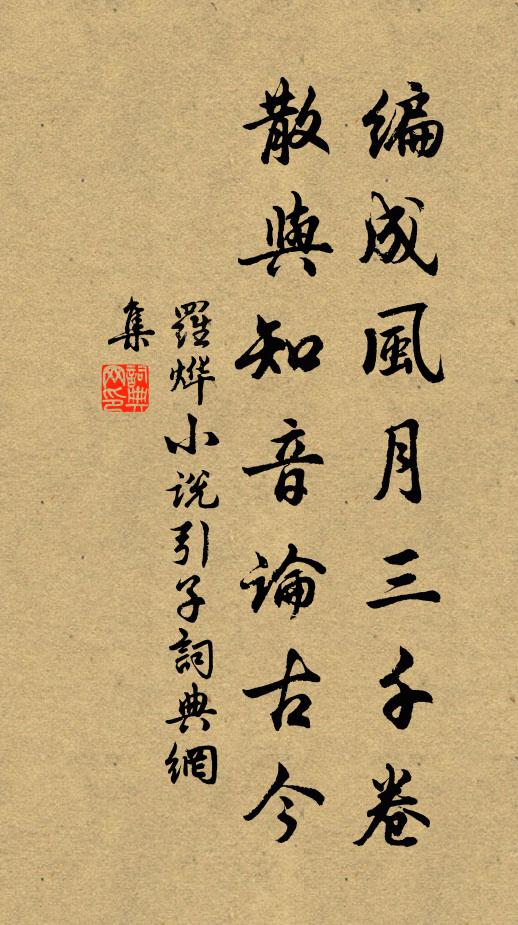 编成風月三千卷
散與知音論古今
羅烨小说引子詞典網
集
詞典網印